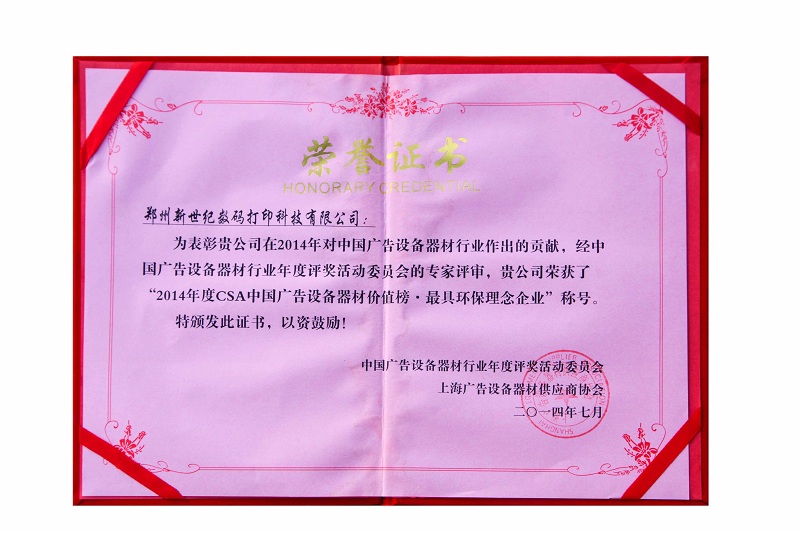 荣誉证书
HONORARY CREDENTIAL
郑州新世纪数码打印科技有限公司：
为表彰贵公司在2014年对中国广告设备器材行业作出的贡献，经中
国广告设备器材行业年度评奖活动委员会的专家评审，贵公司荣获了
“2014年度CSA中国广告设备器材价值榬·最具环保理念企业”称号。
特颁发此证书，以资鼓励！
中国广告设备器材行业年度评奖活动委员会
上海广告设备器材供应商协会
二〇一四年七月